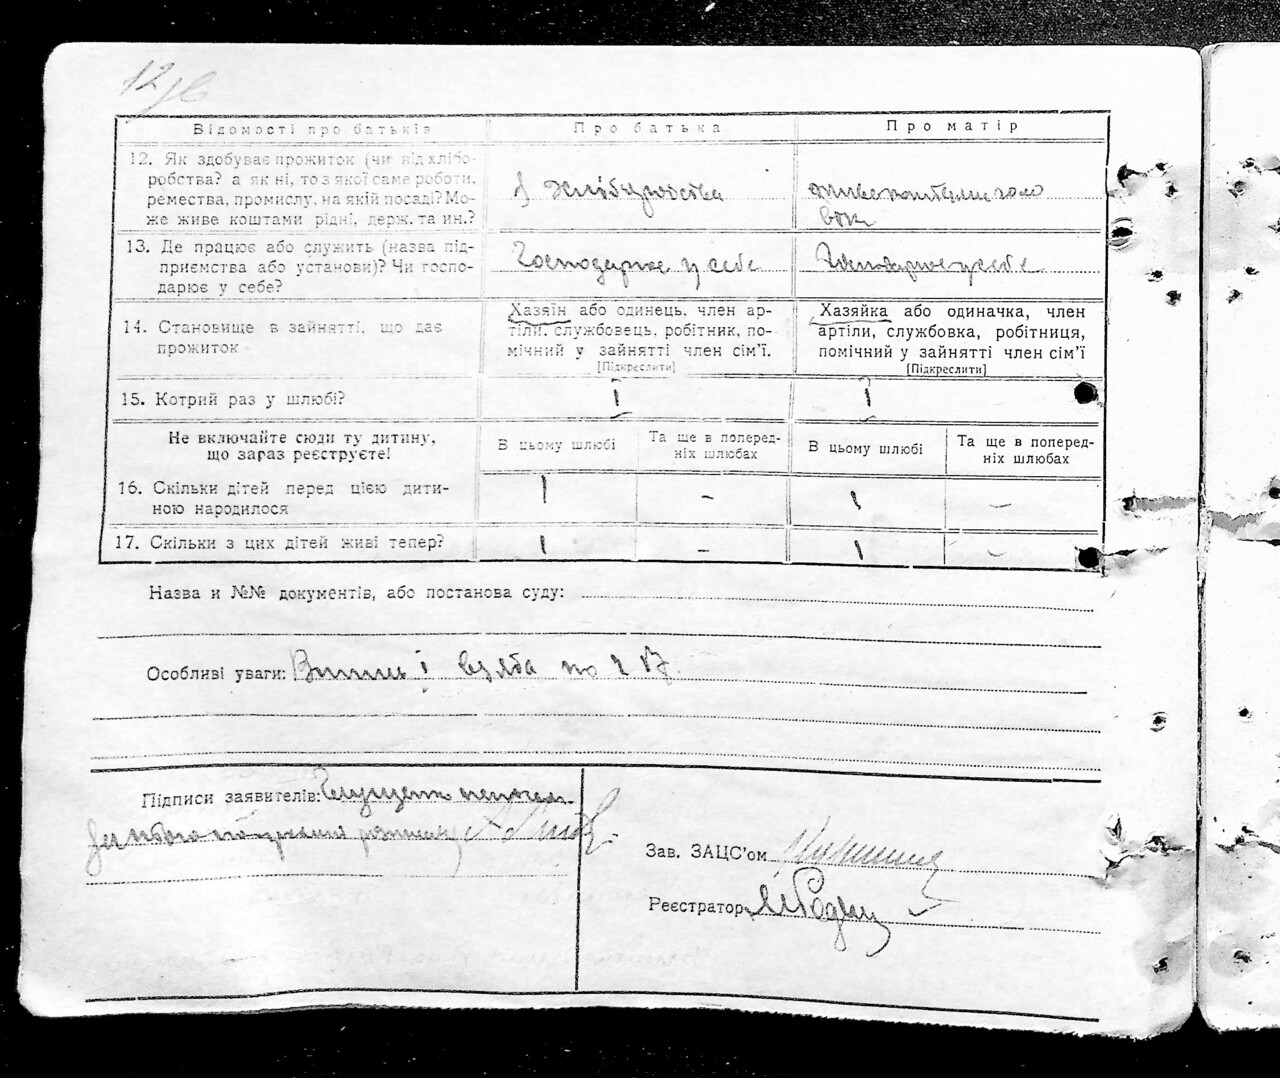 12
Відомості про батьків
Про батька
Про матір
12. Як здобуває прожиток (чи від хлібо-
робства? а як ні, то з якої саме роботи,
ремества, промислу, на якій посаді? Мо-
же живе коштами рідні, держ. та ин.?
З хліборобства
живе коштами чоло
віка
13. Де працює або служить (назва під-
приємства або установи)? Чи госпо-
дарює у себе?
Господарює у себе
Господарює у себе
14. Становище в зайнятті, що дає
прожиток
Хазяїн або одинець, член ар-
тіли, службовець, робітник, по-
мічний у зайнятті член сім’ї.
[Підкреслити]
Хазяйка або одиначка, член
артіли, службовка, робітниця,
помічний у зайнятті член сім’ї
[Підкреслити]
15. Котрий раз у шлюбі?
І
І
Не включайте сюди ту дитину,
що зараз реєструєте!
В цьому шлюбі
Та ще в поперед-
ніх шлюбах
В цьому шлюбі
Та ще в поперед-
ніх шлюбах
16. Скільки дітей перед цією дити-
ною народилося
1 - 1 -
17. Скільки з цих дітей живі тепер?
1 - 1 -
Назва и №№ документів, або постанова суду:
Особливі уваги: і по
Підписи заявителів:
Зав. ЗАЦС’ом
Реєстратор